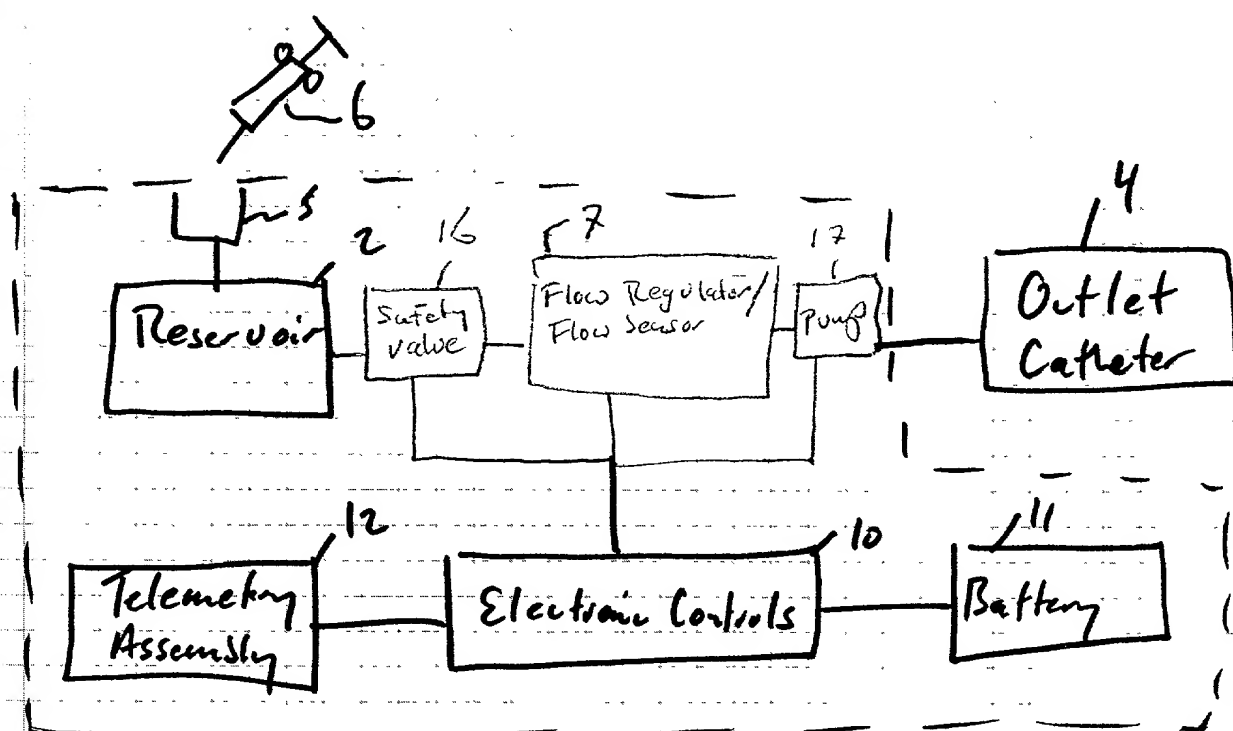 6
5
2
16
7
17
4
Reservoir
Safety
valve
Flow Regulator/
Flow Sensor
Pump
Outlet
Catheter
12
10
11
Telemetry
Assembly
Electronic Controls
Battery